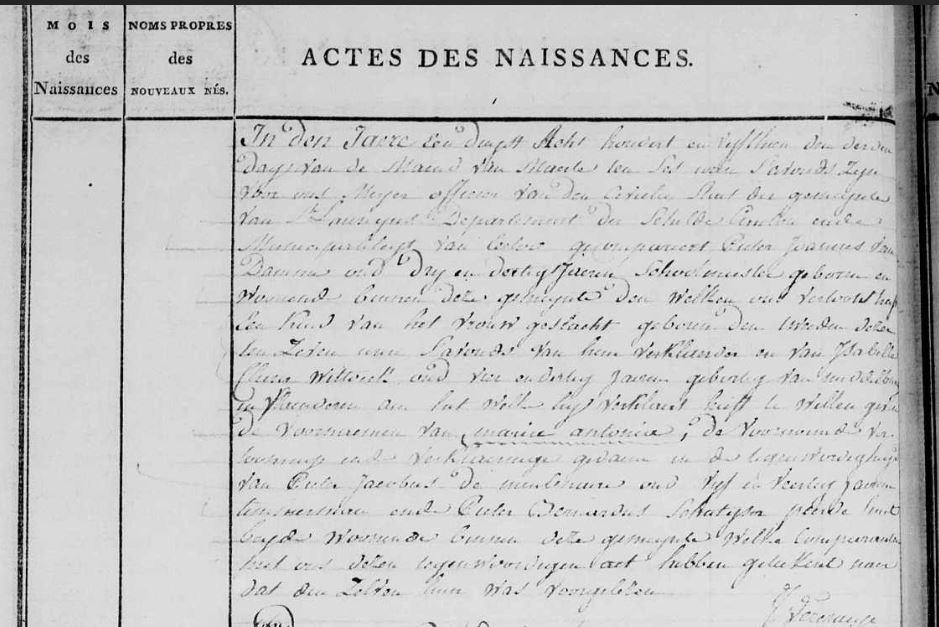 MOIS
des
Naissances
NOMS PROPRES
des
NOUVEAUX NÉS.
ACTES DES NAISSANCES.
In den Jaere Een duyst Acht hondert en vyfthien den derden
dag van de Maend van Maerte ten Ses uren S'avonds Zyn
voor ons Meyer officier van den Civielen Staet der gemeynte
van St Laureyns Departement der Schelde
Municipaliteyt van gecompareert Pieter Joannes Van
Damme oud dry en dertig Jaeren Schoolmeester geboren en
Woonende binnen deze gemeynte den Welken ons vertoont heeft
Een Kind van het vrouw geslacht geboren den deser
ten Zeven uren S'avonds van hem Verklaerder en van Isabelle
oud vier en dertig Jaeren geboortig van middelburg
in Vlaenderen aen het Welk hy Verklaert heeft te Willen geven
de Voornaemen van marie antonia, de Voornoemde Ver-
toninge ende Verklaeringe gedaen in de tegenwoordigheyd
van Pieter Jacobus de meulenaere oud vyf en Veertig Jaeren
timmerman ende Pieter Bernardus
beyde Woonende binnen deze gemeynte Welke Comparanten
met ons desen tegenwoordigen act hebben geteekent naer
dat den Zelven hun was voorgelesen